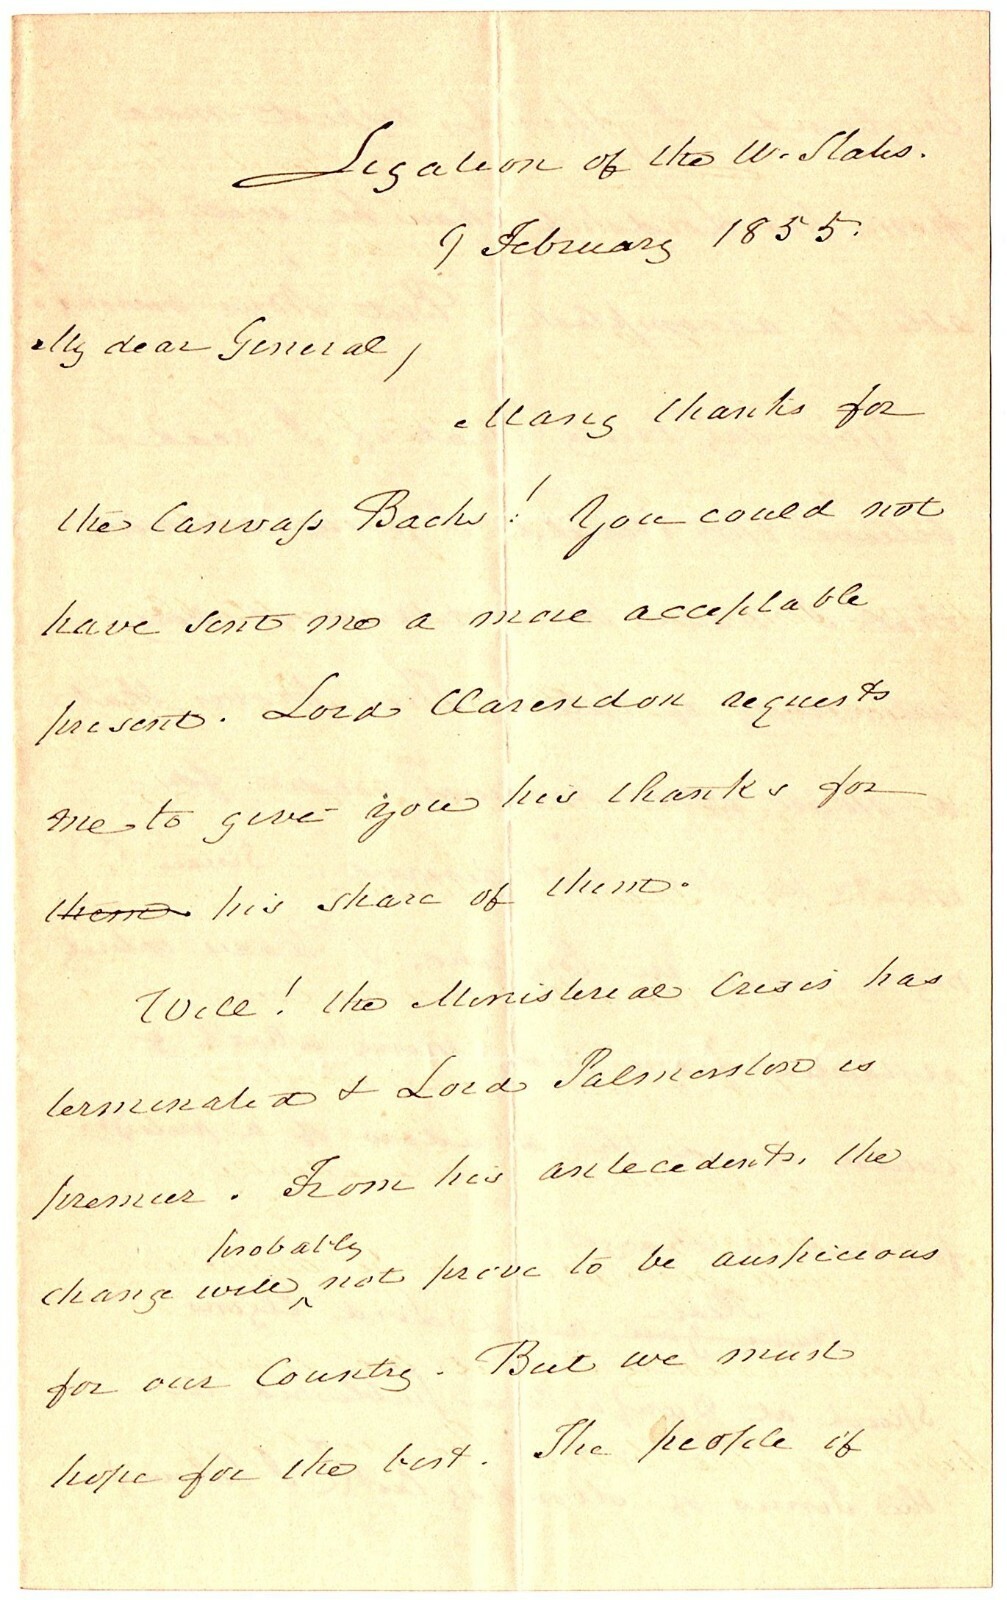 Legation of the U. States.
9 February 1855.
My dear General,
Many thanks for
the Canvass Backs! You could not
have sent me a more acceptable
present. Lord Clarendon requests
me to give you his thanks for
them. his share of them.
Well! the Ministerial Crisis has
terminated & Lord Palmerston is
premier. From his antecedents, the
probably
change will ^ not prove to be auspicious
for our Country. But we must
hope for the best. The people if